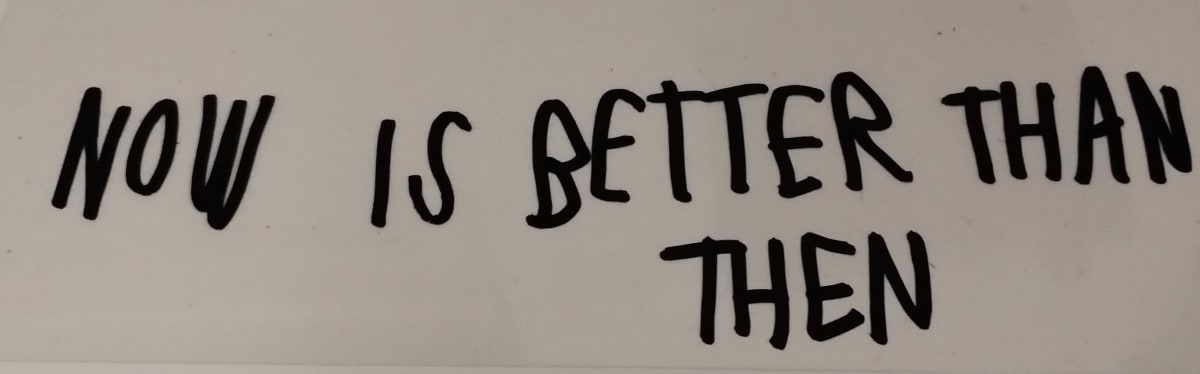 NOW IS BETTER THAN
THEN